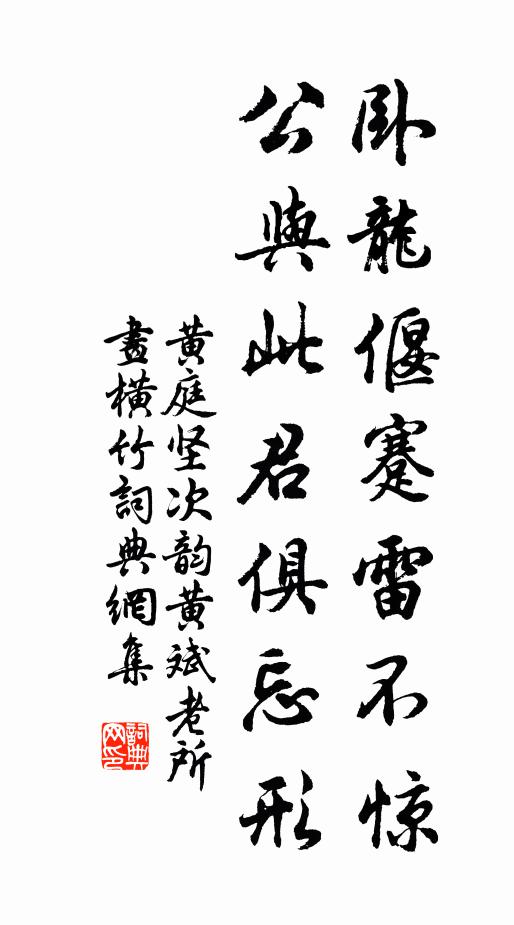 卧龍偃蹇雷不惊
公與此君俱忘形
黄庭坚次韵黄斌老所
畫横竹詞典網集
詞典
网印